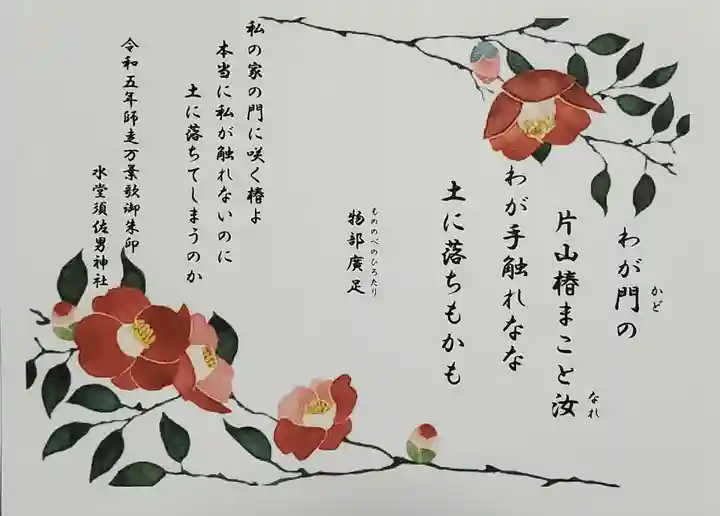 わが門の
かど
片山椿まこと汝
なれ
わが手触れなな
土に落ちもかも
もののべのひろたり
物部廣足
私の家の門に咲く椿よ
本当に私が触れないのに
土に落ちてしまうのか
令和五年師走万葉歌御朱印
水堂須佐男神社